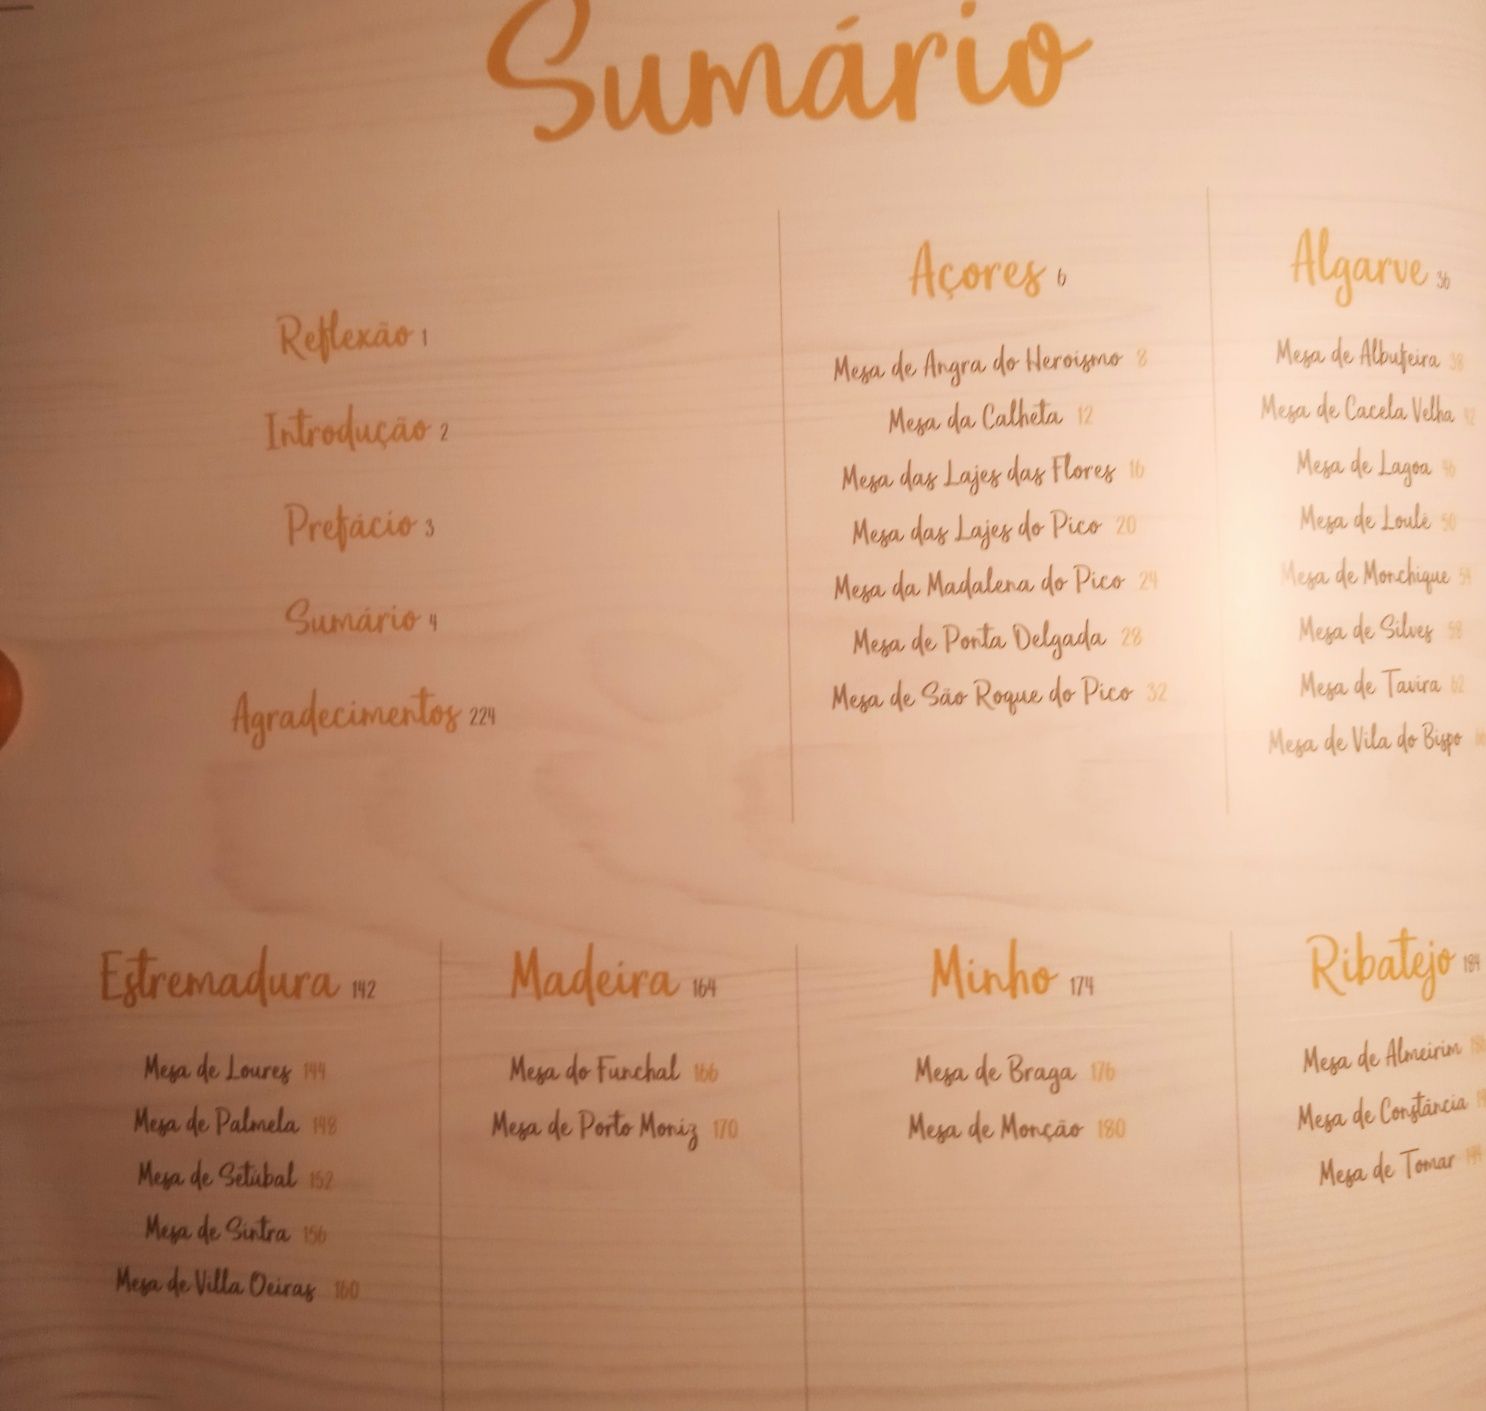 Sumário
Reflexão 1
Introdução 2
Prefácio 3
Sumário 4
Agradecimentos 224
Açores 6
Mesa de Angra do Heroísmo 8
Mesa da Calheta 12
Mesa das Lajes das Flores 16
Mesa das Lajes do Pico 20
Mesa da Madalena do Pico 24
Mesa de Ponta Delgada 28
Mesa de São Roque do Pico 32
Algarve 36
Mesa de Albufeira 38
Mesa de Cacela Velha 42
Mesa de Lagoa 46
Mesa de Loulé 50
Mesa de Monchique 54
Mesa de Silves 58
Mesa de Tavira 62
Mesa de Vila do Bispo
Estremadura 142
Mesa de Loures 144
Mesa de Palmela 148
Mesa de Setúbal 152
Mesa de Sintra 156
Mesa de Villa Oeiras 160
Madeira 164
Mesa do Funchal 166
Mesa de Porto Moniz 170
Minho 174
Mesa de Braga 176
Mesa de Monção 180
Ribatejo 184
Mesa de Almeirim
Mesa de Constância
Mesa de Tomar 194